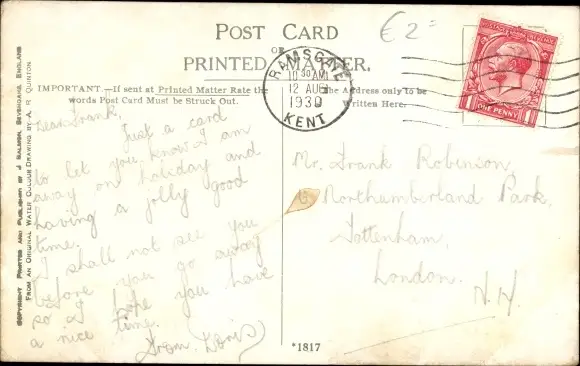 POST CARD
OR
PRINTED MATTER.
IMPORTANT.—If sent at Printed Matter Rate the
words Post Card Must be Struck Out.
The Address only to be
Written Here.
€2=
POSTAGE REVENUE
ONE PENNY
RAMSGATE
10 30 AM
12 AUG
1930
KENT
Dear Frank,
Just a card
to let you know I am
away on holiday and
having a jolly good
time.
I shall not see you
before you go away
so I hope you have
a nice time.
From Doris
Mr. Frank Robinson,
6 Northumberland Park,
Tottenham,
London.
N.17.
*1817
COPYRIGHT PRINTED AND PUBLISHED BY J SALMON, SEVENOAKS, ENGLAND
FROM AN ORIGINAL WATER COLOUR DRAWING BY A. R. QUINTON